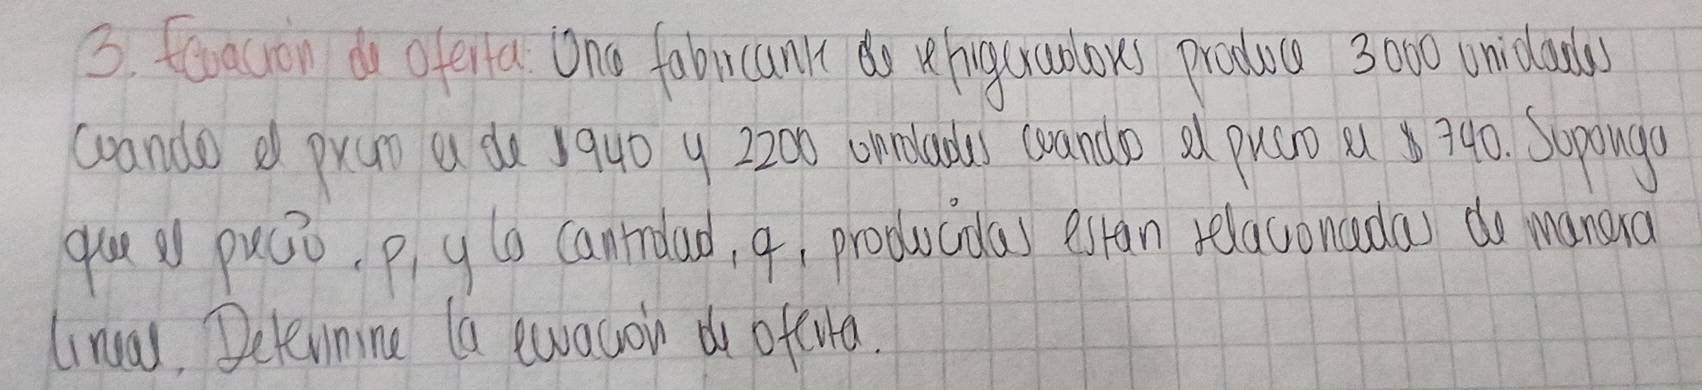 3. Ecuación de oferta: Una fabricante de refrigeradores produce 3000 unidades
cuando el precio es de $940 y 2200 unidades cuando el precio es $740. Suponga
que el precio, p, y la cantidad, q, producidas estan relacionadas de manera
lineal. Determine la ecuación de oferta.